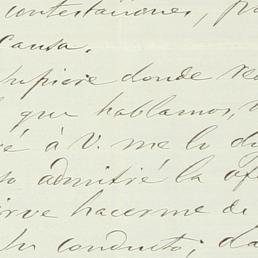 contestaciones, pa
causa.
supiere donde re
que hablamos, v
ré á V. me lo di
so admitiré la ofe
irve hacerme de
su conducto; da